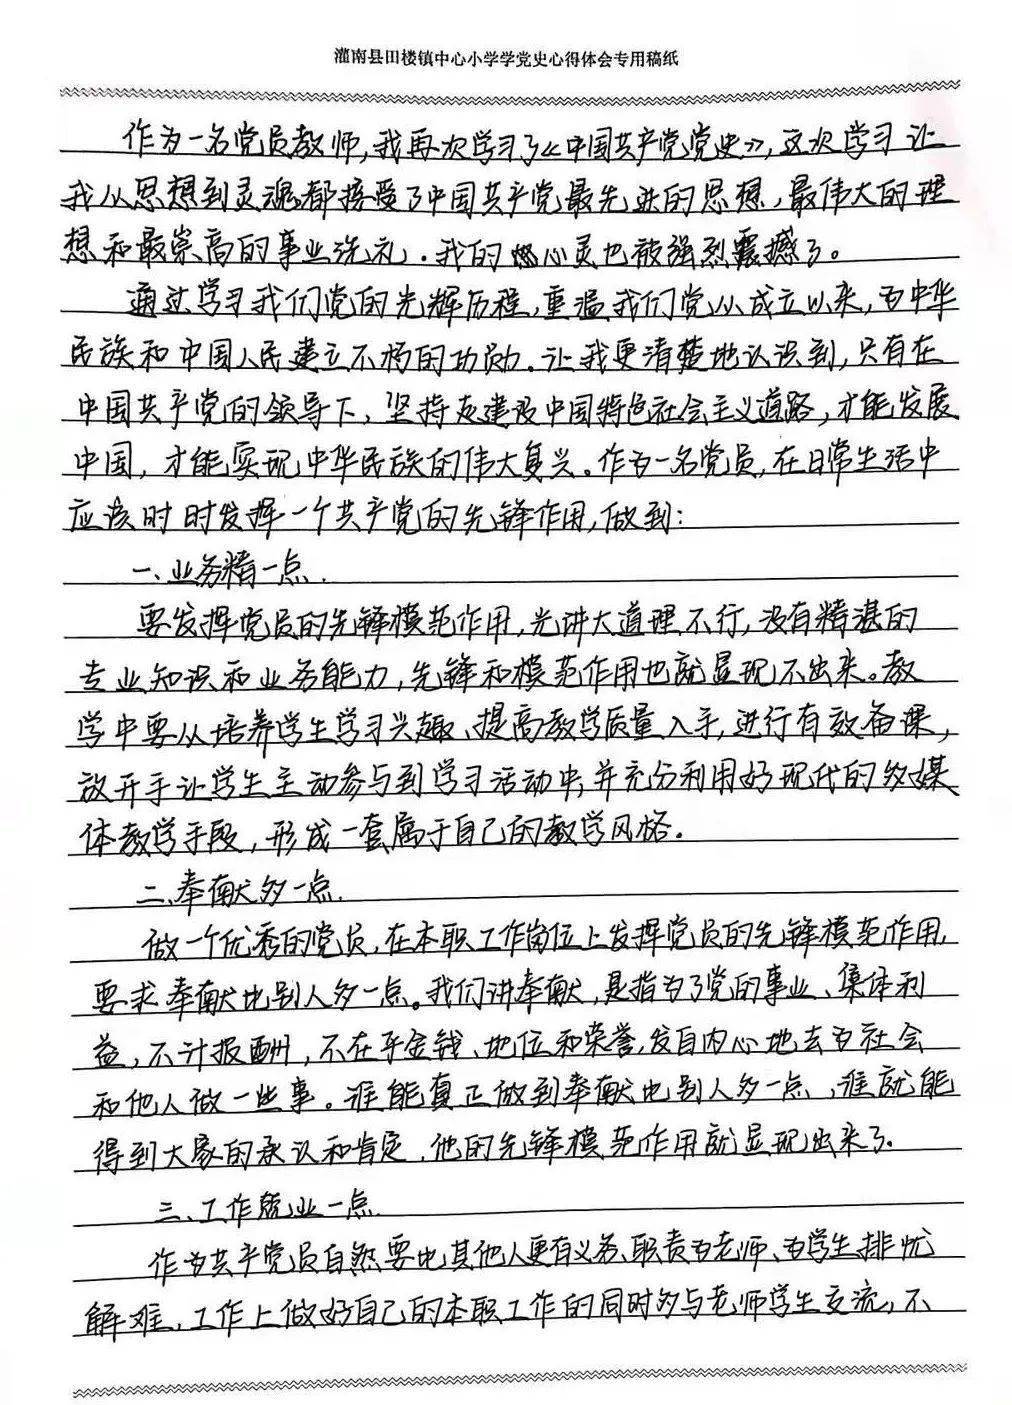 灌南县田楼镇中心小学学党史心得体会专用稿纸
作为一名党员教师,我再次学习了《中国共产党党史》,这次学习让
我从思想到灵魂都接受了中国共产党最先进的思想,最伟大的理
想和最崇高的事业洗礼.我的心灵也被强烈震撼了。
通过学习我们党的光辉历程,重温我们党从成立以来,为中华
民族和中国人民建立不朽的功勋.让我更清楚地认识到,只有在
中国共产党的领导下,坚持走建设中国特色社会主义道路,才能发展
中国,才能实现中华民族的伟大复兴。作为一名党员,在日常生活中
应该时时发挥一个共产党的先锋作用,做到:
一、业务精一点.
要发挥党员的先锋模范作用,光讲大道理不行,没有精湛的
专业知识和业务能力,先锋和模范作用也就显现不出来。教
学中要从培养学生学习兴趣、提高教学质量入手,进行有效备课,
放开手让学生主动参与到学习活动中,并充分利用好现代的多媒
体教学手段,形成一套属于自己的教学风格.
二、奉献多一点.
做一个优秀的党员,在本职工作岗位上发挥党员的先锋模范作用,
要求奉献比别人多一点。我们讲奉献,是指为了党的事业、集体利
益,不计报酬,不在乎金钱、地位和荣誉,发自内心地去为社会
和他人做一些事。谁能真正做到奉献比别人多一点,谁就能
得到大家的承认和肯定,他的先锋模范作用就显现出来了.
三、工作兢业一点.
作为共产党员自然要比其他人更有义务、职责为老师、为学生排忧
解难,工作上做好自己的本职工作的同时多与老师学生交流,不